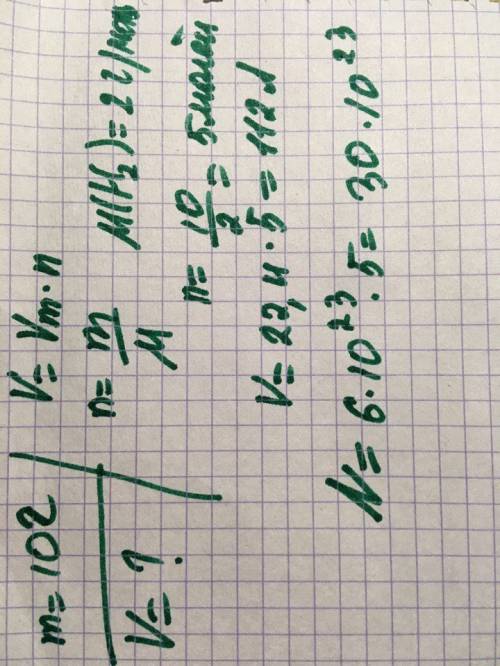 m = 10г
V = ?
V = Vm · n
n = m/M    M(H₂) = 2 г/моль
n = 10/2 = 5 молей
V = 22,4 · 5 = 112 л
N = 6 · 10²³ · 5 = 30 · 10²³